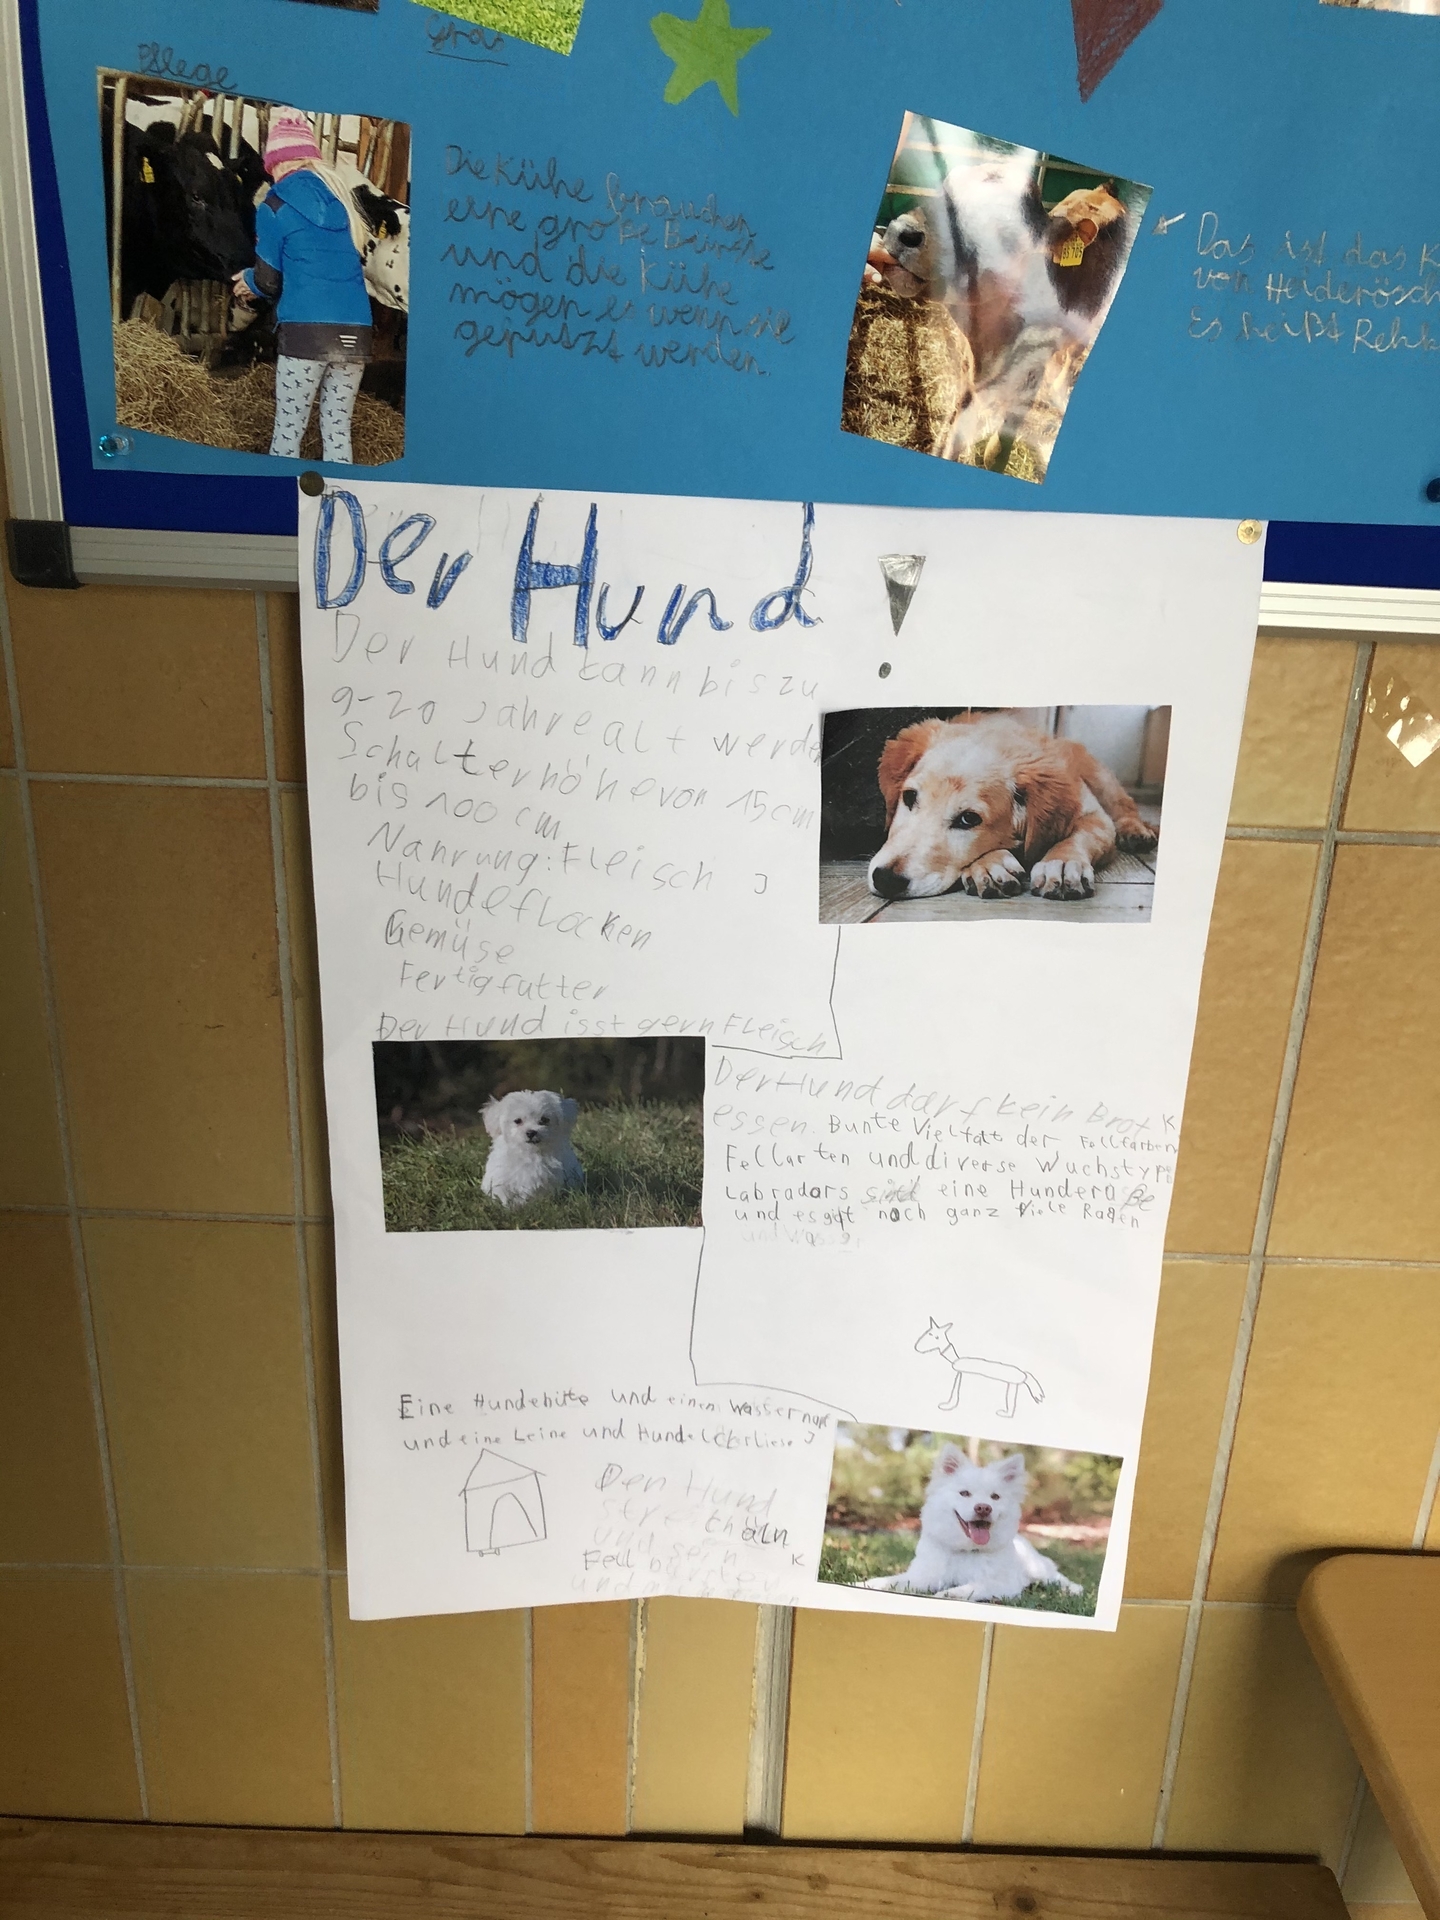 Gras
Pflege
Die Kühe brauchen
eine große Bürste
und die Kühe
mögen es wenn sie
geputzt werden.
Das ist das K
von Heiderösch
Es heißt Rehk
Der Hund!
Der Hund kann bis zu
9-20 Jahre alt werden
Schalterhöhe von 15 cm
bis 100 cm
Nahrung: Fleisch J
Hundeflocken
Gemüse
Fertigfutter
Der Hund isst gern Fleisch
Der Hund darf kein Brot K
essen. Bunte Vielfalt der Fellfarben
Fellarten und diverse Wuchstype
Labradors sind eine Hunderaße
und es gibt noch ganz viele Raßen
und Wasser
Eine Hundehüte und einen Wassernapf
und eine Leine und J
Den Hund
streichäln
und sein
Fell bürsten K
und